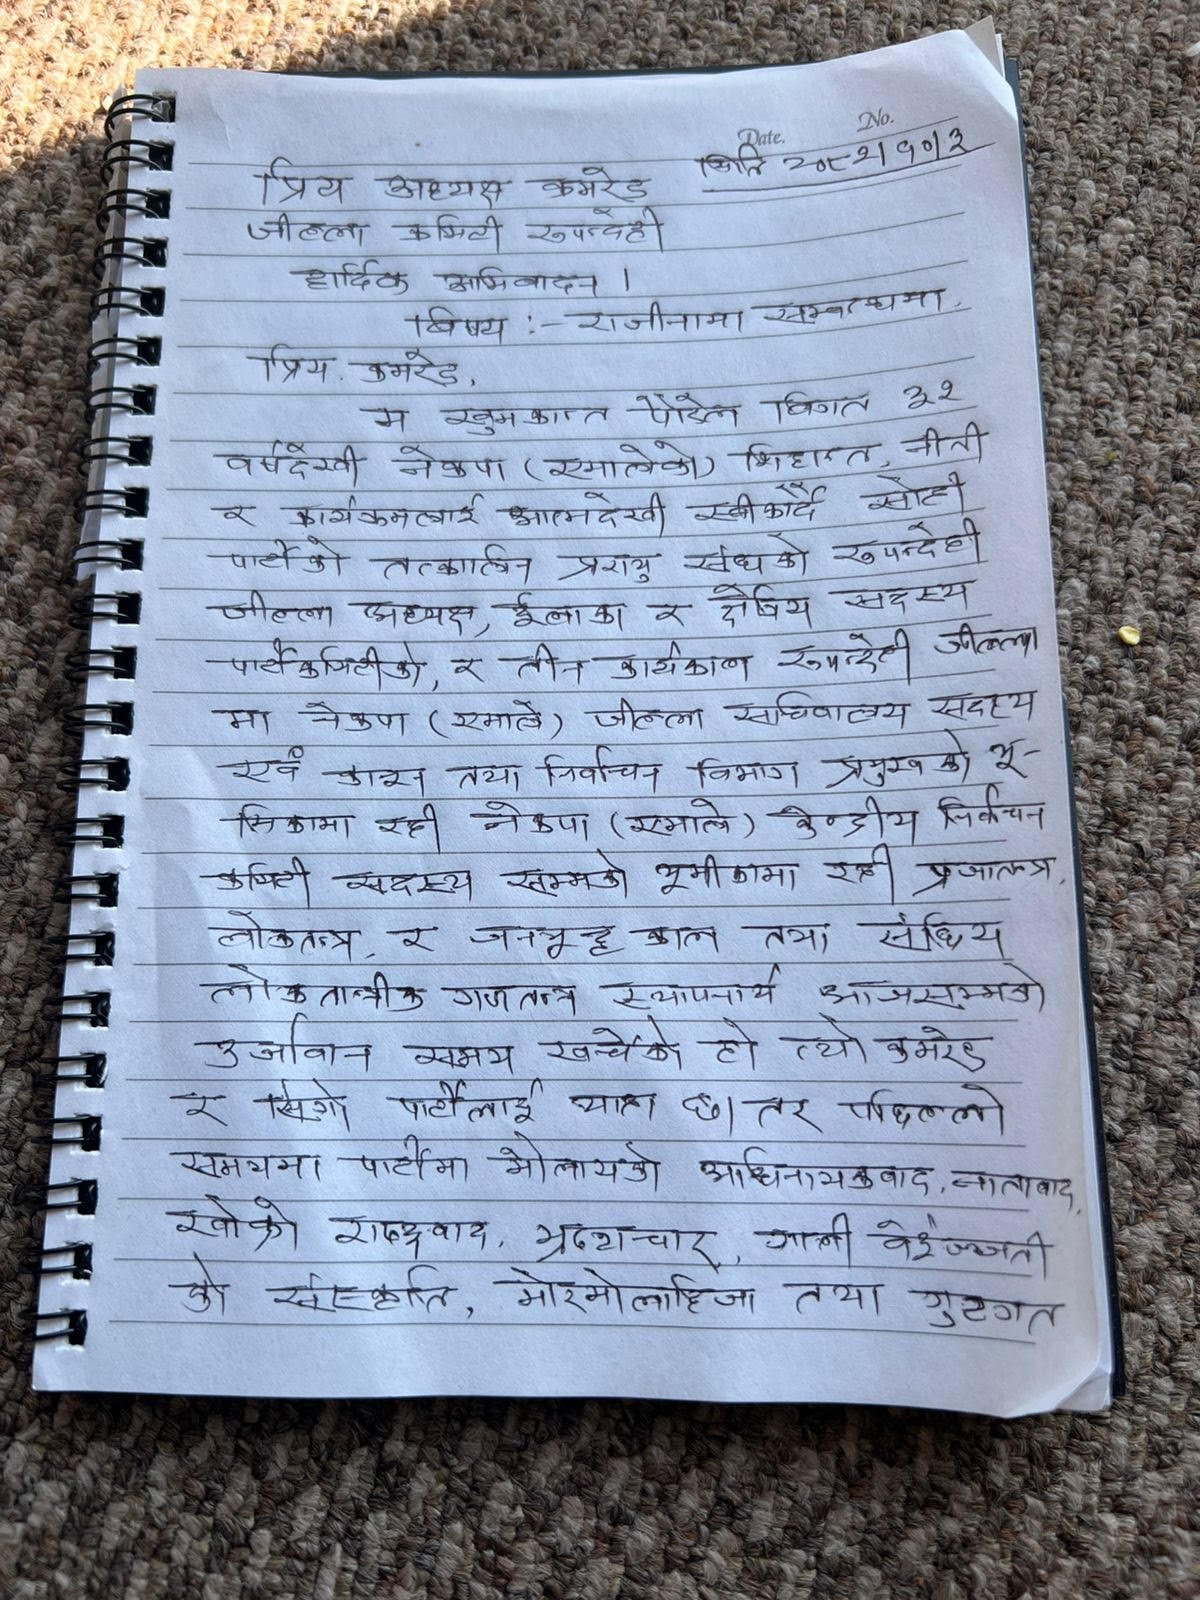 Date. No.
मिति २०८२।१०।३
प्रिय अध्यक्ष कमरेड
जील्ला कमिटी रुपन्देही
हार्दिक अभिवादन ।
बिषय :- राजीनामा सम्बन्धमा.
प्रिय. कमरेड,
म खुमकान्त पौडेल विगत ३२
वर्षदेखी नेकपा (एमालेको) सिद्दान्त, नीती
र कार्यक्रमलाई आत्मदेखी स्वीकार्दै सोही
पार्टीको तत्कालिन प्ररायु संघको रुपन्देही
जील्ला अध्यक्ष, ईलाका र क्षेत्रिय सदस्य
पार्टीकमिटीको, र तीन कार्यकाल रुपन्देही जील्ला
मा नेकपा (एमाले) जील्ला सचिवालय सदस्य
एवं कानून तथा निर्वाचन विभाग प्रमुखको भू-
मिकामा रही नेकपा (एमाले) केन्द्रीय निर्वाचन
कमिटी सदस्य सम्मको भूमीकामा रही प्रजातन्त्र,
लोकतन्त्र, र जनयूद्द काल तथा संघिय
लोकतान्त्रीक गणतन्त्र स्थापनार्थ आजसम्मको
उर्जावान समय खर्चेको हो त्यो कमरेड
र सिंगो पार्टीलाई थाहा छ। तर पछिल्लो
समयमा पार्टीमा मौलायको अधिनायकवाद, नातावाद,
खोक्रो राष्ट्रवाद, भ्रष्टाचार, गाली वेईज्जती
को संस्कृति, मोरमोलाहिजा तथा गुटगत